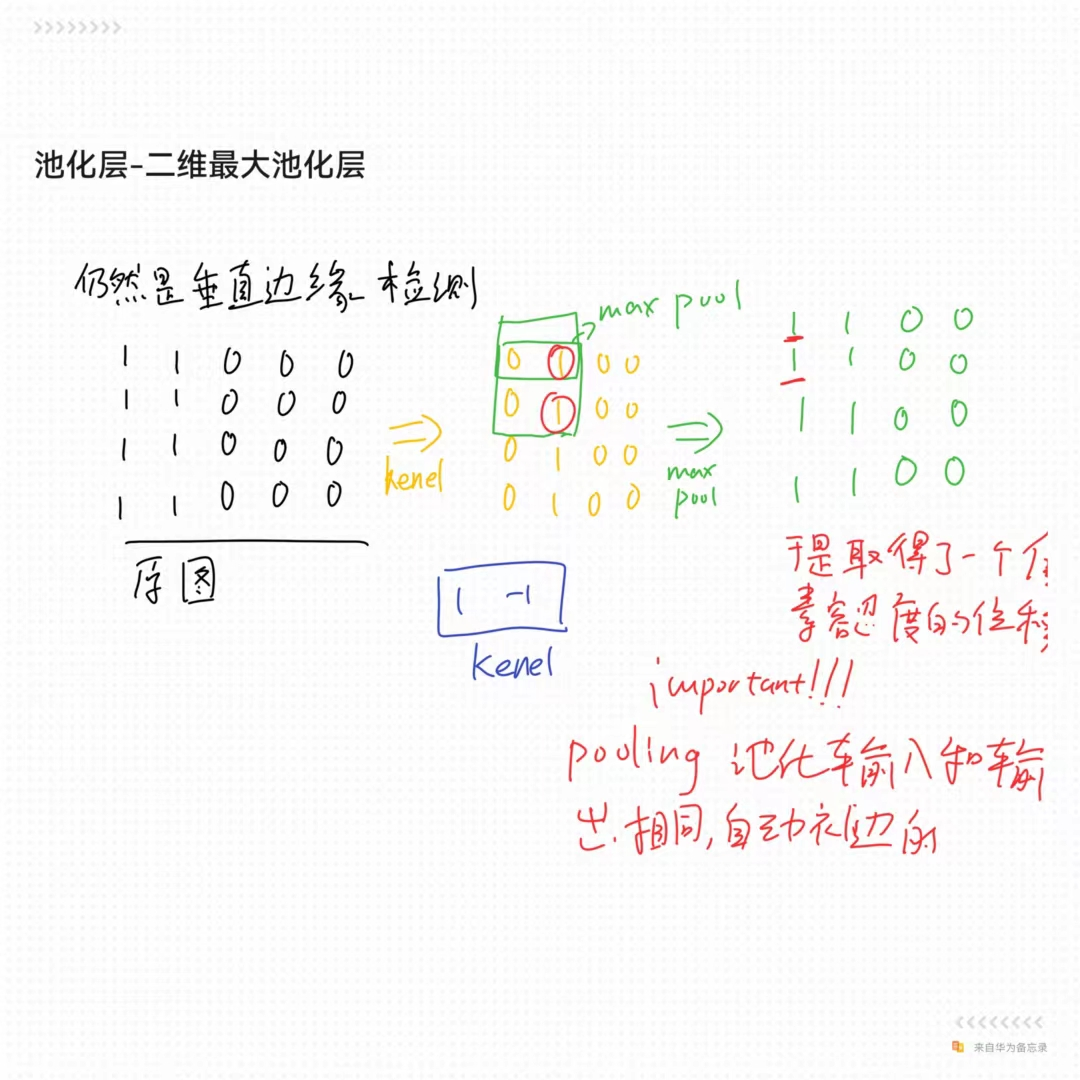 池化层-二维最大池化层
仍然是垂直边缘检测
max pool
1 1 0 0 0
1 1 0 0 0
1 1 0 0 0
1 1 0 0 0
原图
kenel
0 1 0 0
0 1 0 0
0 1 0 0
0 1 0 0
max
pool
1 1 0 0
1 1 0 0
1 1 0 0
1 1 0 0
1 -1
kenel
于是取得了一个
素容忍度的位移
important!!!
pooling 池化输入和输
出相同,自动补边的
来自华为备忘录